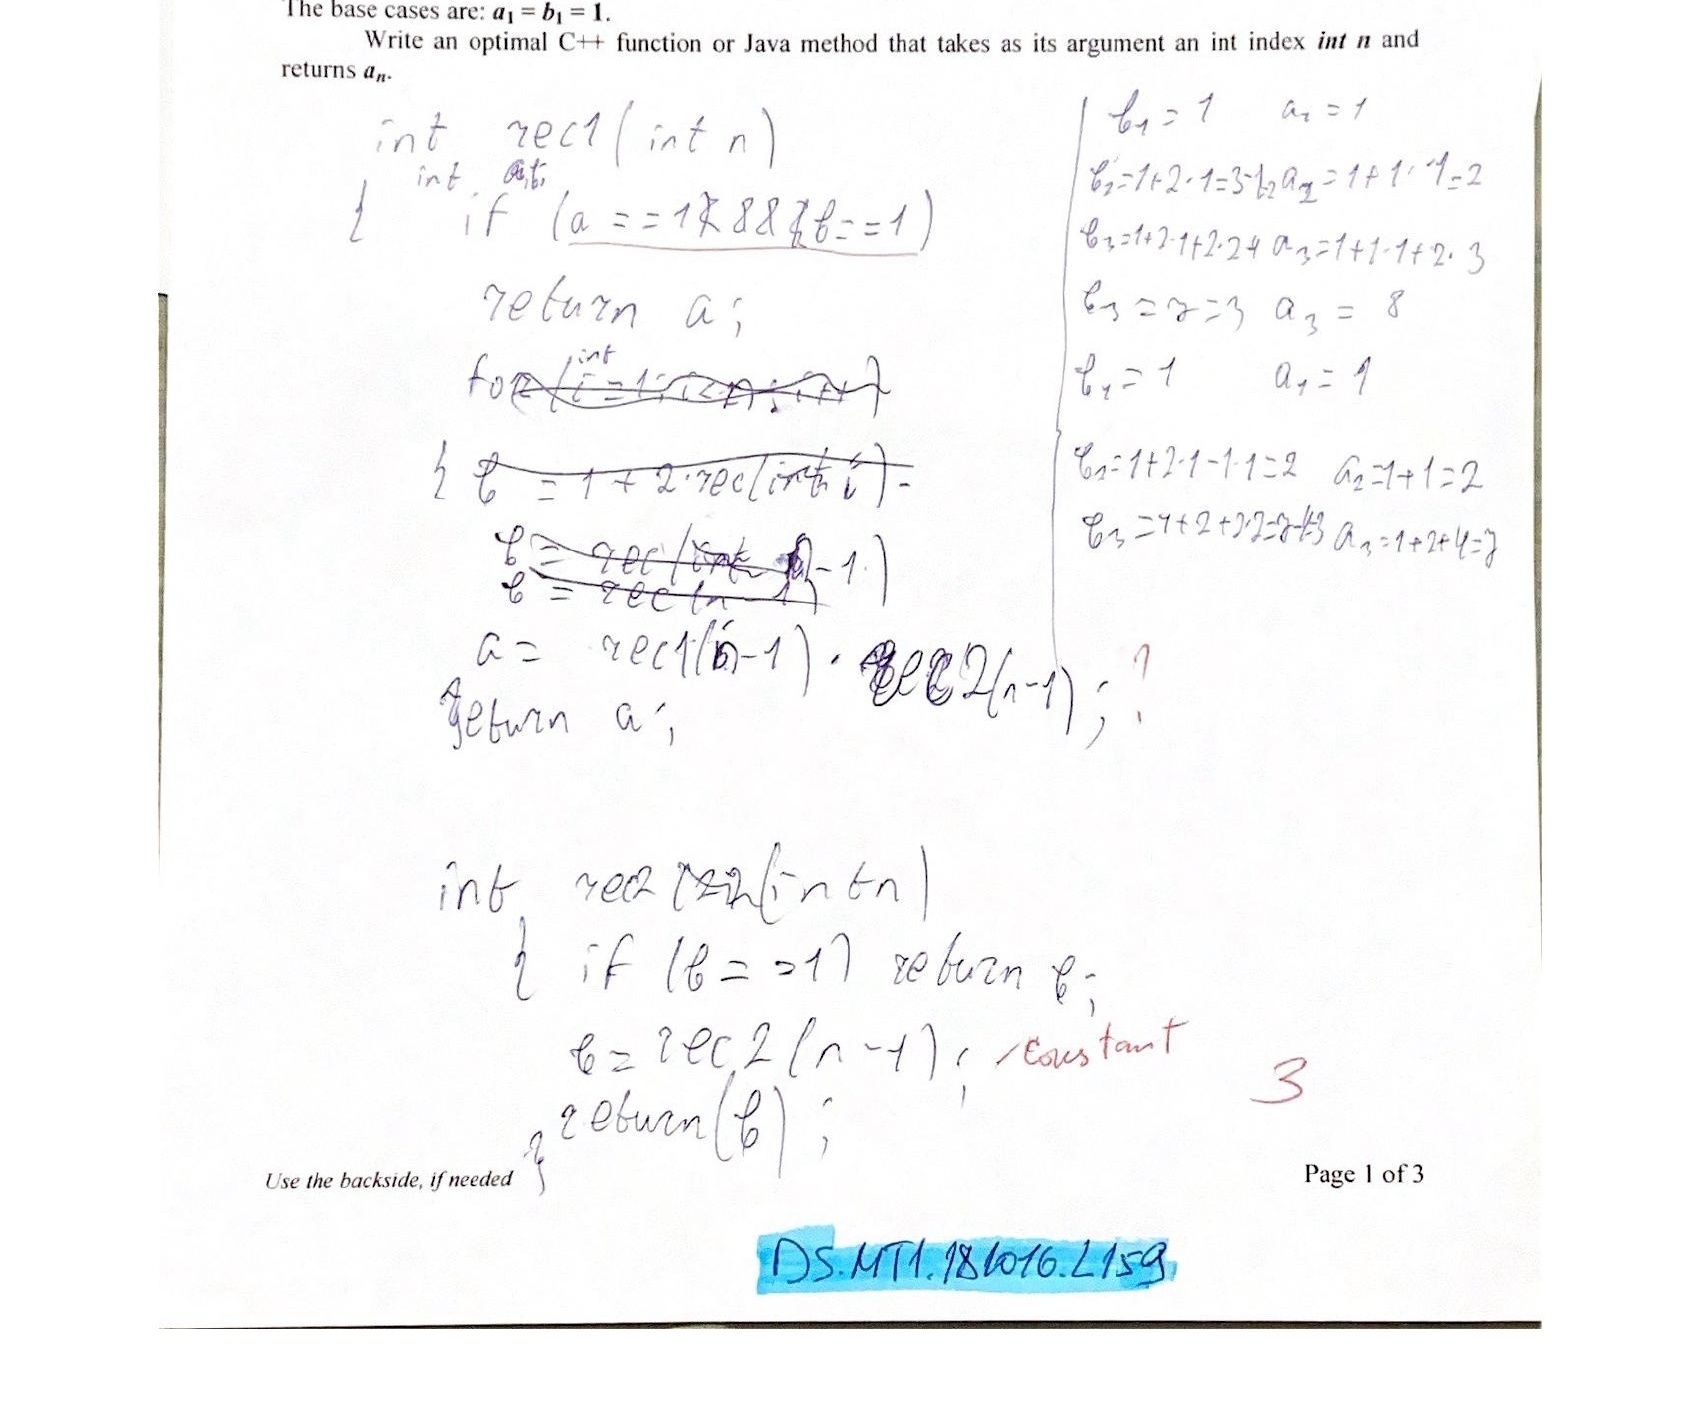 The base cases are: a₁ = b₁ = 1.
Write an optimal C++ function or Java method that takes as its argument an int index int n and
returns aₙ.
int rec1(int n)
int a, b;
{ if (a == 1 && b == 1)
return a;
for (int i = 1; i < n; i++)
{ b = 1 + 2·rec(int i) -
b = rec(int n-1)
b = rec(n-1)
a = rec1(n-1) · rec2(n-1); ?
return a;
b₁ = 1 a₁ = 1
b₂=1+2·1=3 a₂=1+1·1=2
b₃=1+2·1+2·2 a₃=1+1·1+2·3
b₃ = 7 = 3 a₃ = 8
b₁ = 1 a₁ = 1
b₂=1+2·1-1·1=2 a₂=1+1=2
a₃=1+2+4=7
int rec2 (int n)
{ if (b == 1) return b;
b = rec2(n-1); constant
return(b);
}
3
Use the backside, if needed
Page 1 of 3
DS.MT1.181016.L159